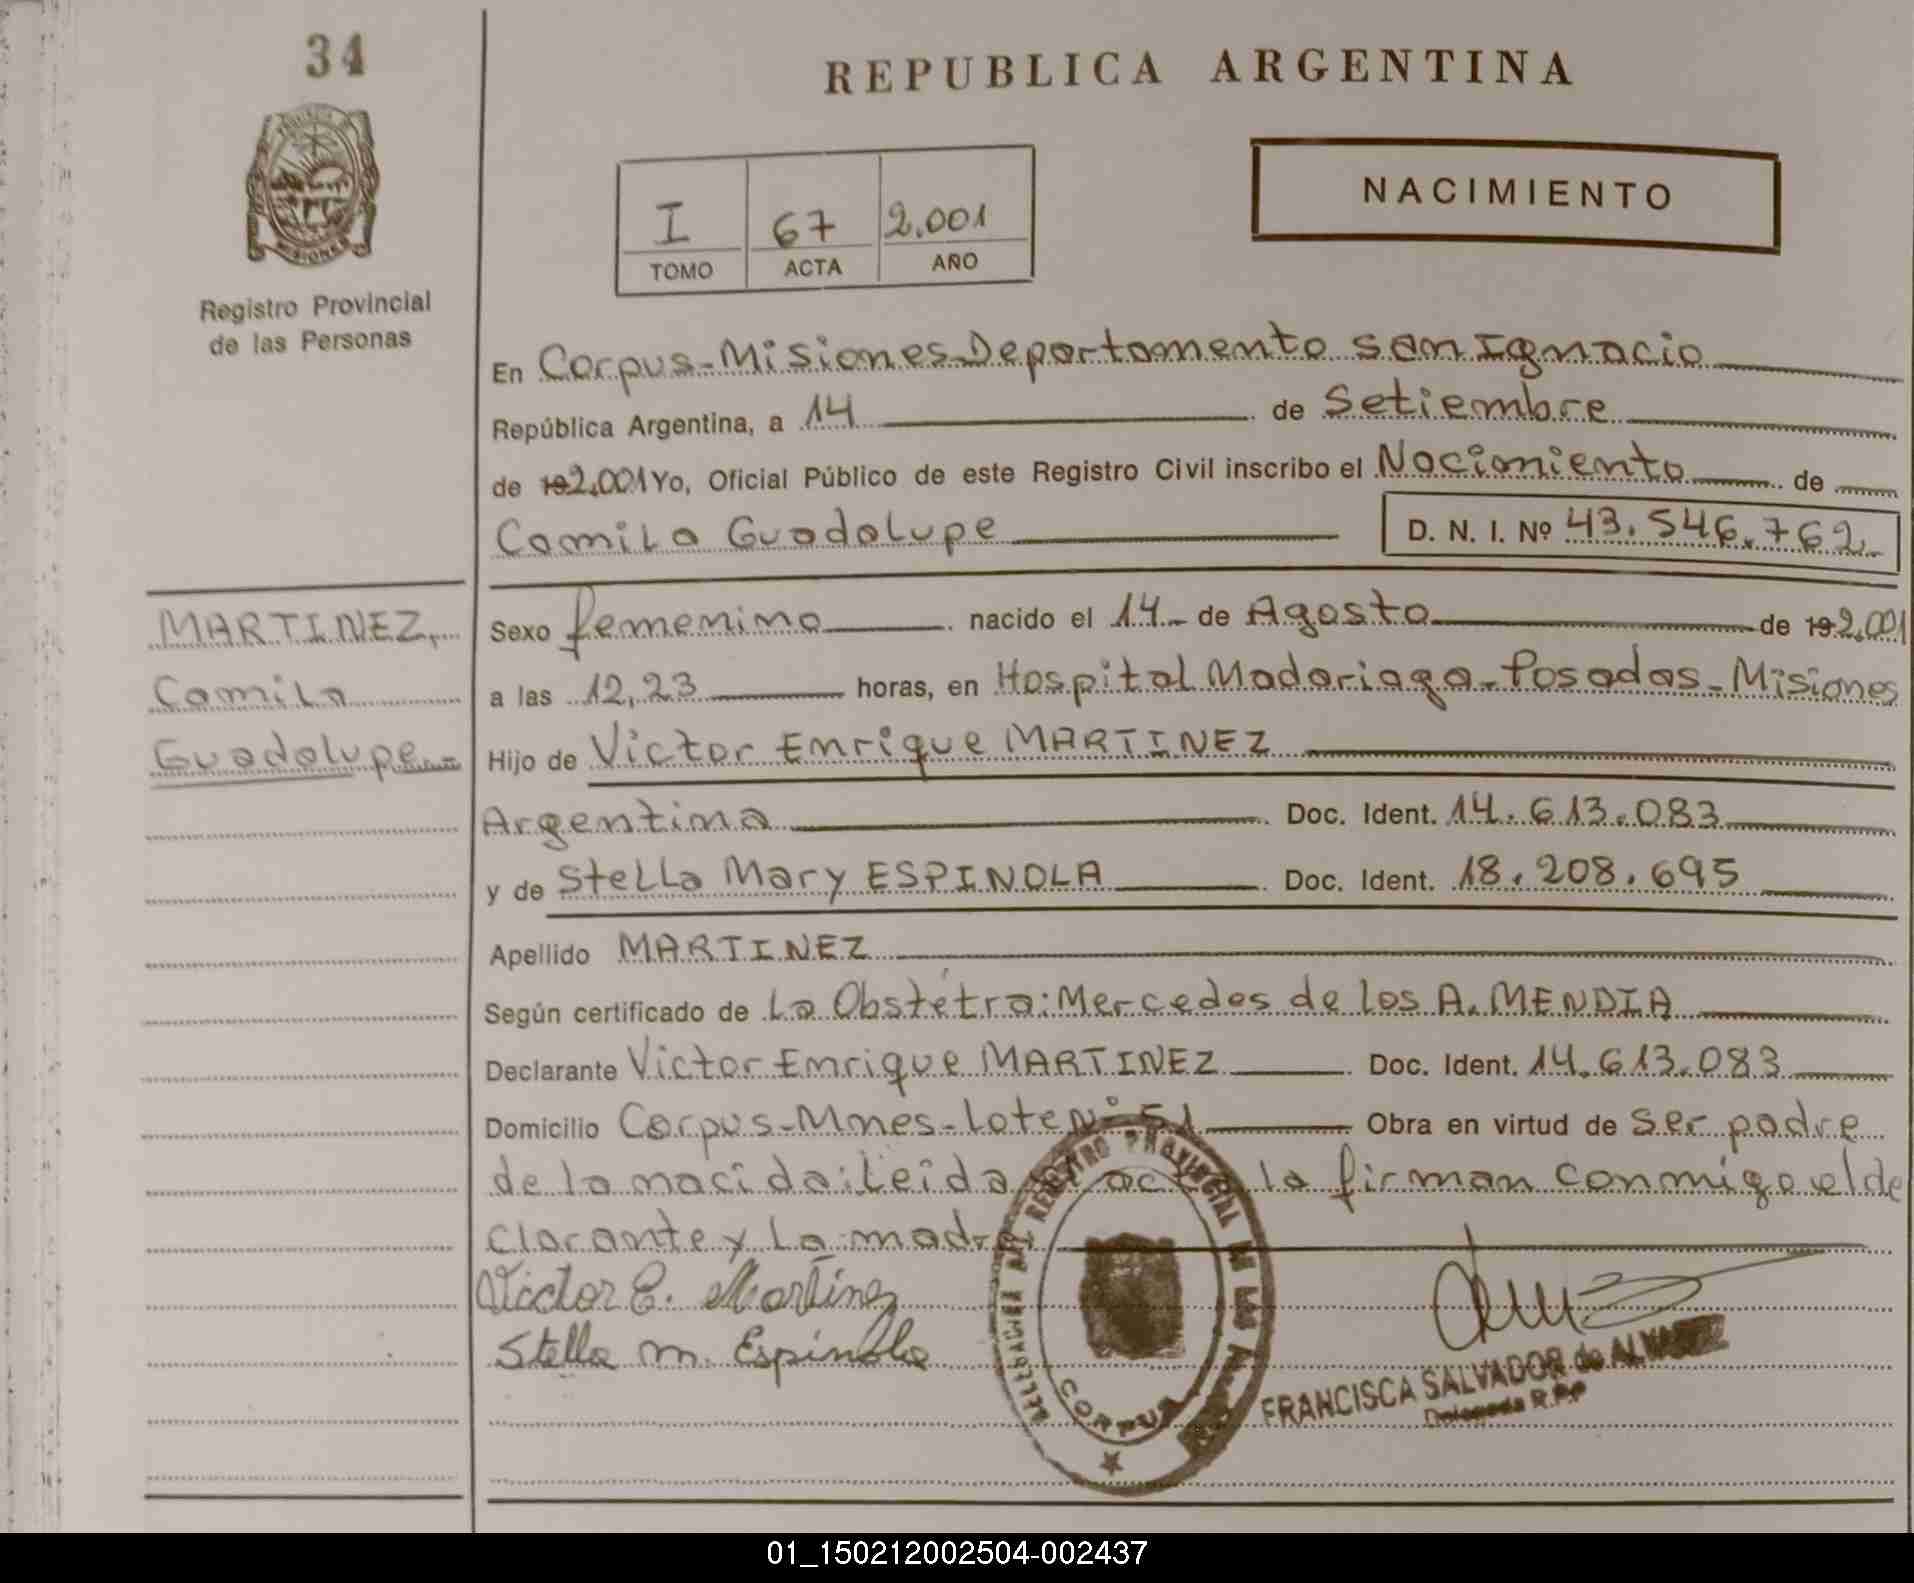 34
REPUBLICA ARGENTINA
NACIMIENTO
I 67 2.001
TOMO ACTA AÑO
MISIONES
Registro Provincial
de las Personas
En Corpus-Misiones-Departamento San Ignacio
República Argentina, a 14 de Setiembre
de 192.001 Yo, Oficial Público de este Registro Civil inscribo el Nacimiento de
Camila Guadalupe D. N. I. Nº 43.546.762.-
MARTINEZ,
Camila
Guadalupe.-
Sexo femenino nacido el 14 de Agosto de 192.001
a las 12,23 horas, en Hospital Madariaga-Posadas-Misiones
Hijo de Victor Enrique MARTINEZ
Argentina Doc. Ident. 14.613.083
y de Stella Mary ESPINOLA Doc. Ident. 18.208.695
Apellido MARTINEZ
Según certificado de La Obstétra: Mercedes de los A. MENDIA
Declarante Victor Enrique MARTINEZ Doc. Ident. 14.613.083
Domicilio Corpus-Mnes-Lote Nº 51 Obra en virtud de ser padre
de la nacida: Leida la firman conmigo el de
clarante y La madre
Victor E. Martinez
Stella M. Espinola
REGISTRO PROVINCIAL DE LAS
CORPUS
FRANCISCA SALVADOR de ALVAREZ
Delegada R.P.P
01_150212002504-002437